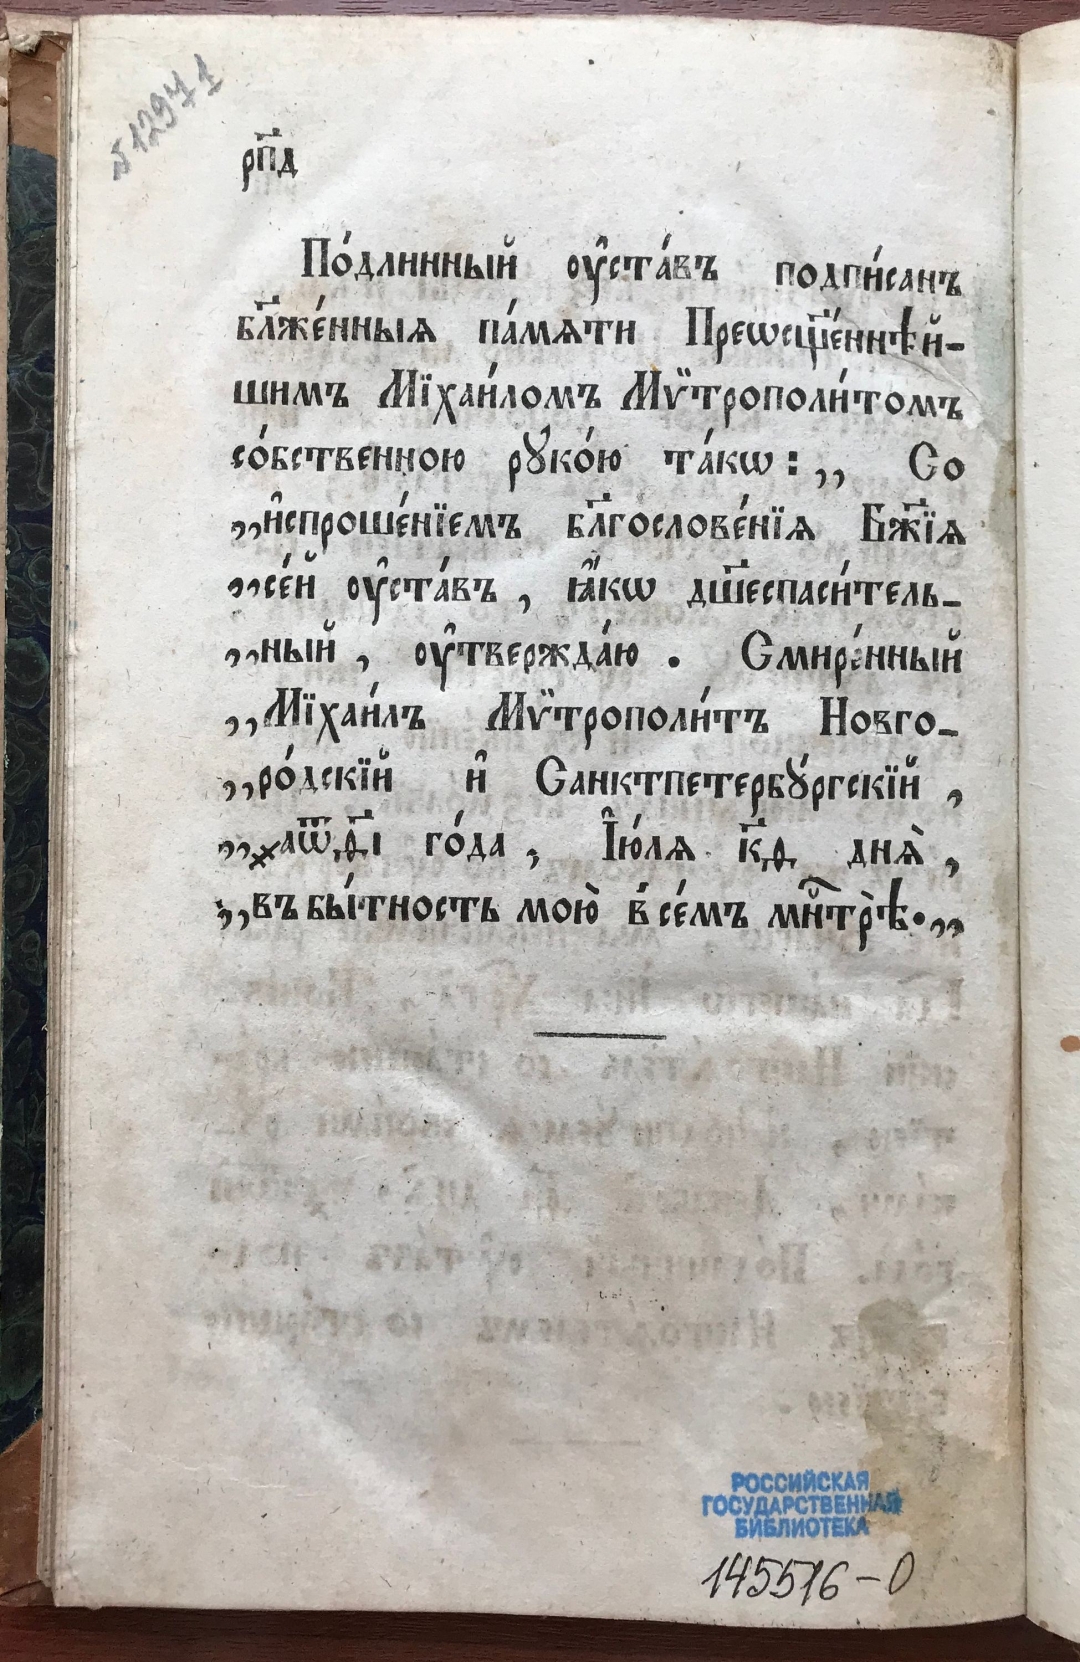 № 12971
рп҃д
По́длинный ᲂу҆ста́въ подпи́санъ
бл҃же́нныѧ па́мѧти Преѡсщ҃е́ннѣй-
шимъ Мїхаи́ломъ Мѷтрополи́томъ
со́бственною рꙋко́ю та́кѡ: ,, Со
,,и҆спроше́нїемъ бл҃гослове́нїѧ Бж҃їѧ
,,се́й ᲂу҆ста́въ , ꙗ҆́кѡ дш҃еспаси́тель-
,,ный , ᲂу҆твержда́ю . Смире́нный
,,Мїхаи́лъ Мѷтрополи́тъ Новго-
,,ро́дскїй и҆ Санктпетербꙋ́ргскїй ,
,,҂аѿ҃.ѳ҃і го́да , І҆ю́лѧ к҃ѳ. днѧ̀ ,
,,въ бы́тность мою̀ в се́мъ мн҃тр̀ѣ.,,
РОССИЙСКАЯ
ГОСУДАРСТВЕННАЯ
БИБЛИОТЕКА
145516-0